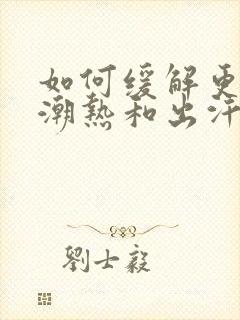 如何缓解更
潮熱和出汗
劉士毅